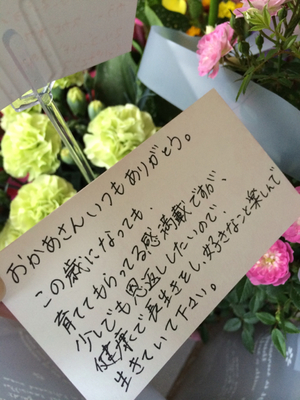 おかあさんいつもありがとう。
この歳になっても、
育ててもらってる感満載ですが、
少しでも恩返ししたいので
健康で長生きをし、好きなこと楽しんで
生きていて下さい。